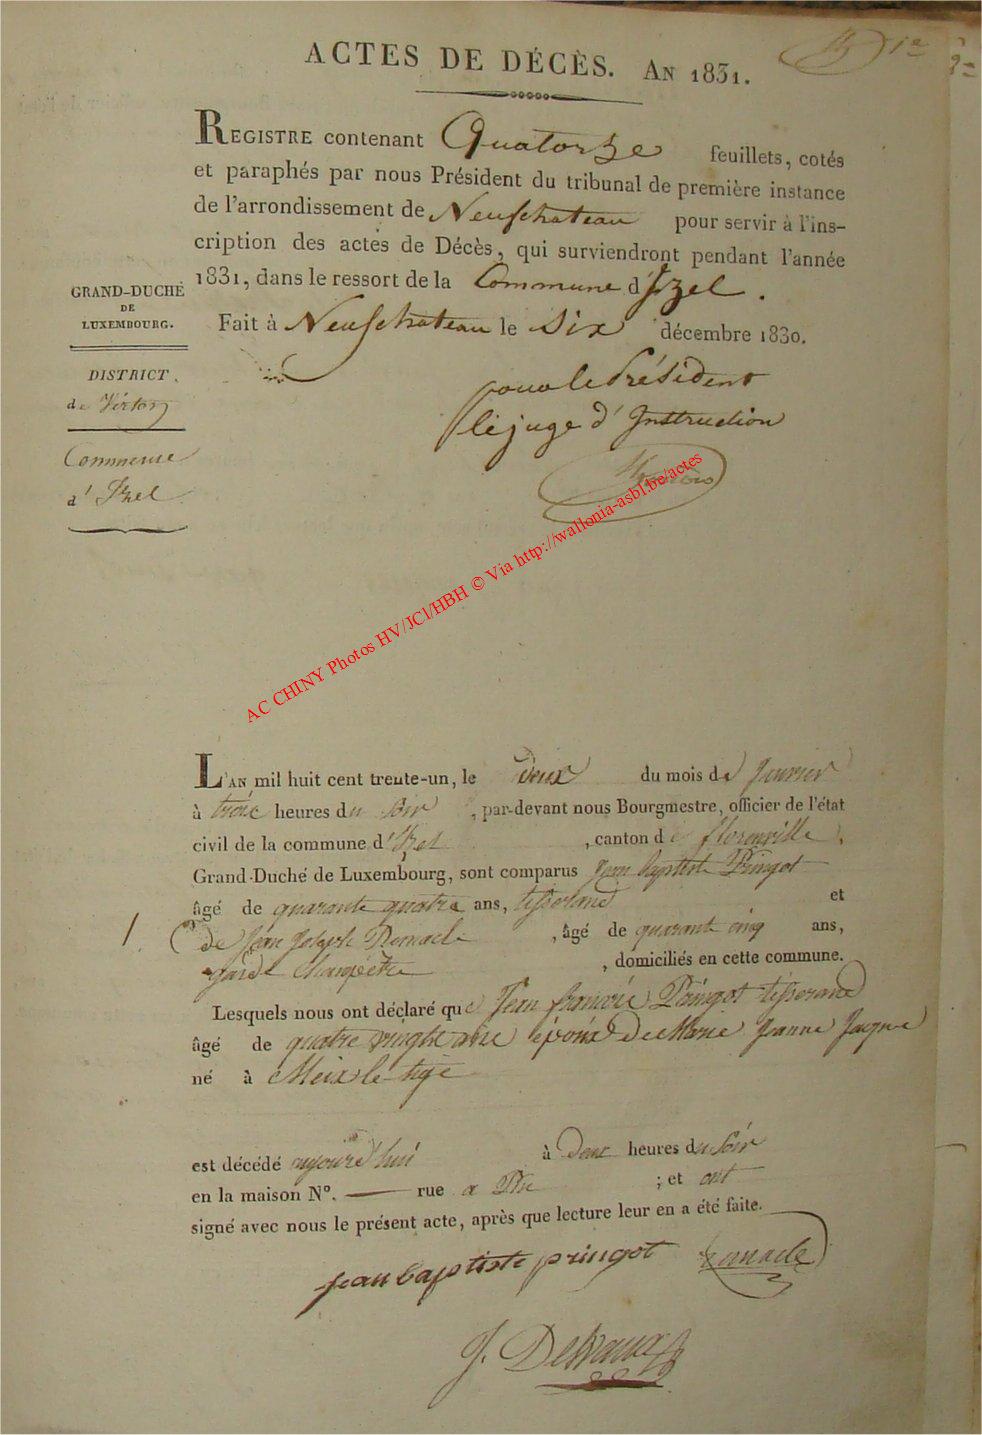 ACTES DE DÉCÈS. AN 1831. 1re
REGISTRE contenant Quatorze feuillets, cotés
et paraphés par nous Président du tribunal de première instance
de l'arrondissement de Neufchateau pour servir à l'ins-
cription des actes de Décès, qui surviendront pendant l'année
1831, dans le ressort de la Commune d'Izel.
Fait à Neufchateau le Six décembre 1830.
GRAND-DUCHÉ
DE
LUXEMBOURG.
DISTRICT
de Virton
Commune
d'Izel
pour le Président
le juge d'Instruction
AC CHINY Photos HV/JCl/HBH © Via http://wallonia-asbl.be/actes
L'AN mil huit cent trente-un, le deux du mois de fevrier
à trois heures du soir, par-devant nous Bourgmestre, officier de l'état
civil de la commune d'Izel, canton de florenville,
Grand-Duché de Luxembourg, sont comparus Jean baptiste Pringot
âgé de quarante quatre ans, tisserand et
1. de Jean Joseph Remacle, âgé de quarante cinq ans,
garde Champêtre, domiciliés en cette commune.
Lesquels nous ont déclaré que Jean francois Pringot tisserand
âgé de quatre vingt époux de Marie Jeanne
né à Meix le tige
est décédé aujourd'hui à Deux heures du Soir
en la maison N°. — rue a Pin; et ont
signé avec nous le présent acte, après que lecture leur en a été faite.
jean baptiste pringot Remacle
J. Delvaux